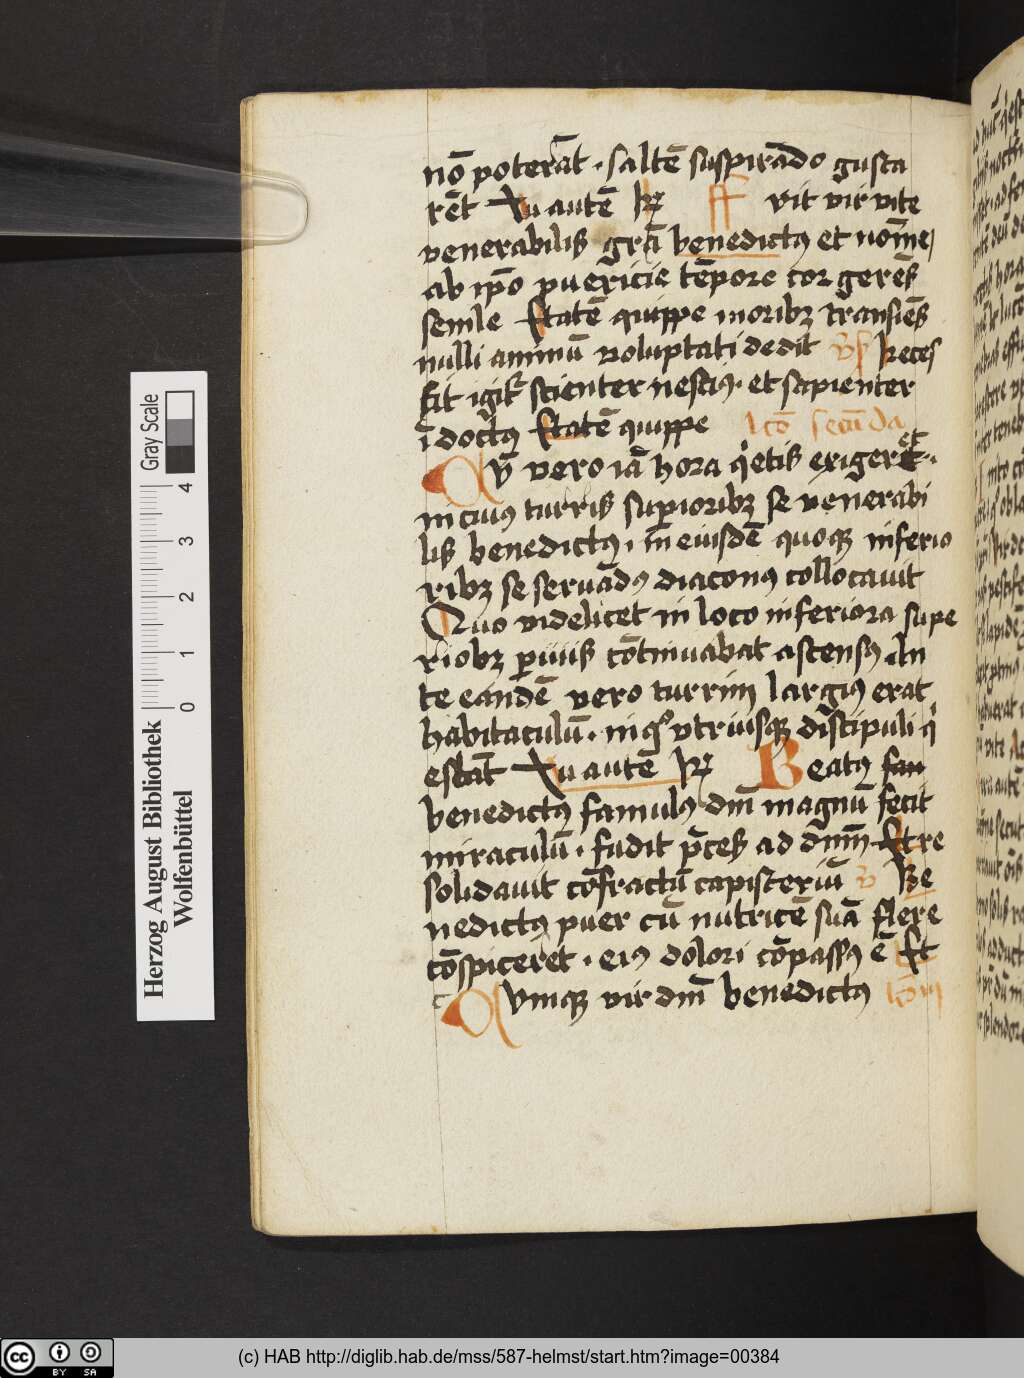 nō poterāt · saltē suspirādo gusta
rēt Tu autē R ff vit vir vite
venerabilis grā benedictꝰ et nōīe
ab ipō puericie tēpore cor gerēs
senile Etatē quippe moribꝫ transiēs
nulli animū voluptati dedit vs̄ Reces
sit igit᷑ scienter nesciꝰ · et sapienter
īdoctꝰ Etatē quippe lcō secūda
Qū vero iā hora q̇etis exigeret ·
in cuiꝰ turris sup̱ioribꝫ se venerabi
lis benedictꝰ · in eiusdē quoqꝫ inferio
ribꝫ se seruādꝰ diaconꝰ collocauit
Quo videlicet in loco inferiora supe
riobꝫ ꝑuiis cōtinuabat ascensꝰ An
te eandē vero turrim largiꝰ erat
habitaculū · in qͦ vtriusqꝫ discipuli q̇
escāt Tu autē R Beatꝰ fam
benedictꝰ famulꝰ dn̄i magnū fecit
miraculū · fudit p̄ces ad dn̄m Et re
solidauit cōfractū capisteriū v̄ Be
nedictꝰ puer cū nutricē suā flere
cōspiceret · eiꝰ dolori cōpassꝰ ē Et
c Qumqꝫ vir dn̄i benedictꝰ lcō iij
Gray Scale
4
3
2
1
0
Herzog August Bibliothek
Wolfenbüttel
cc BY SA
(c) HAB http://diglib.hab.de/mss/587-helmst/start.htm?image=00384